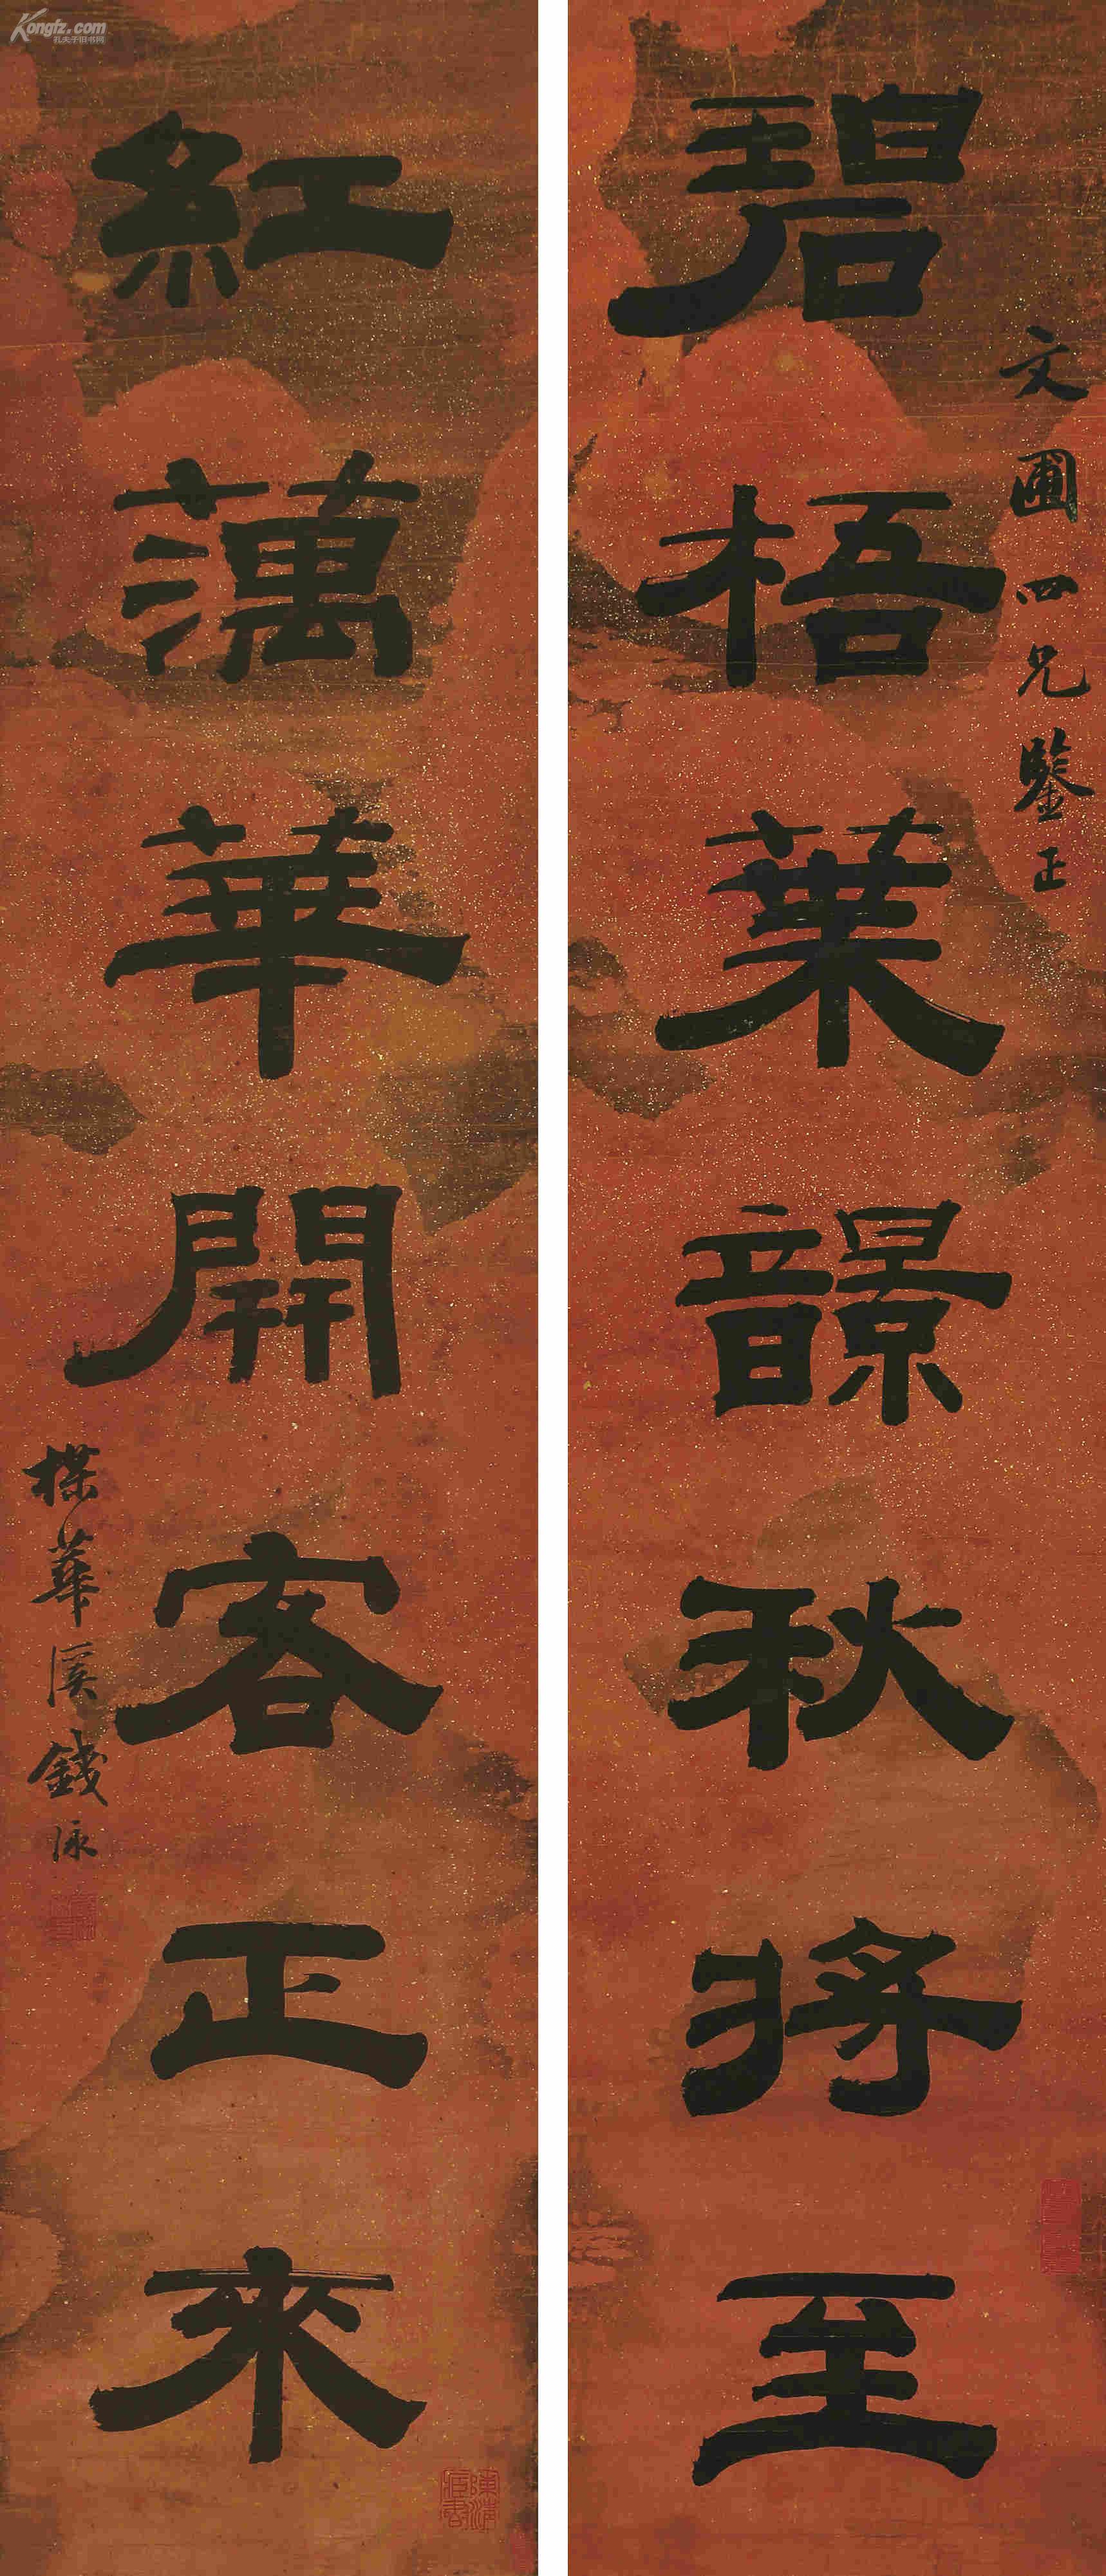 Kongfz.com
孔夫子旧书网
文圃四兄鑒正
碧梧葉秋將至
紅蕅華開客正來
楳華溪錢泳